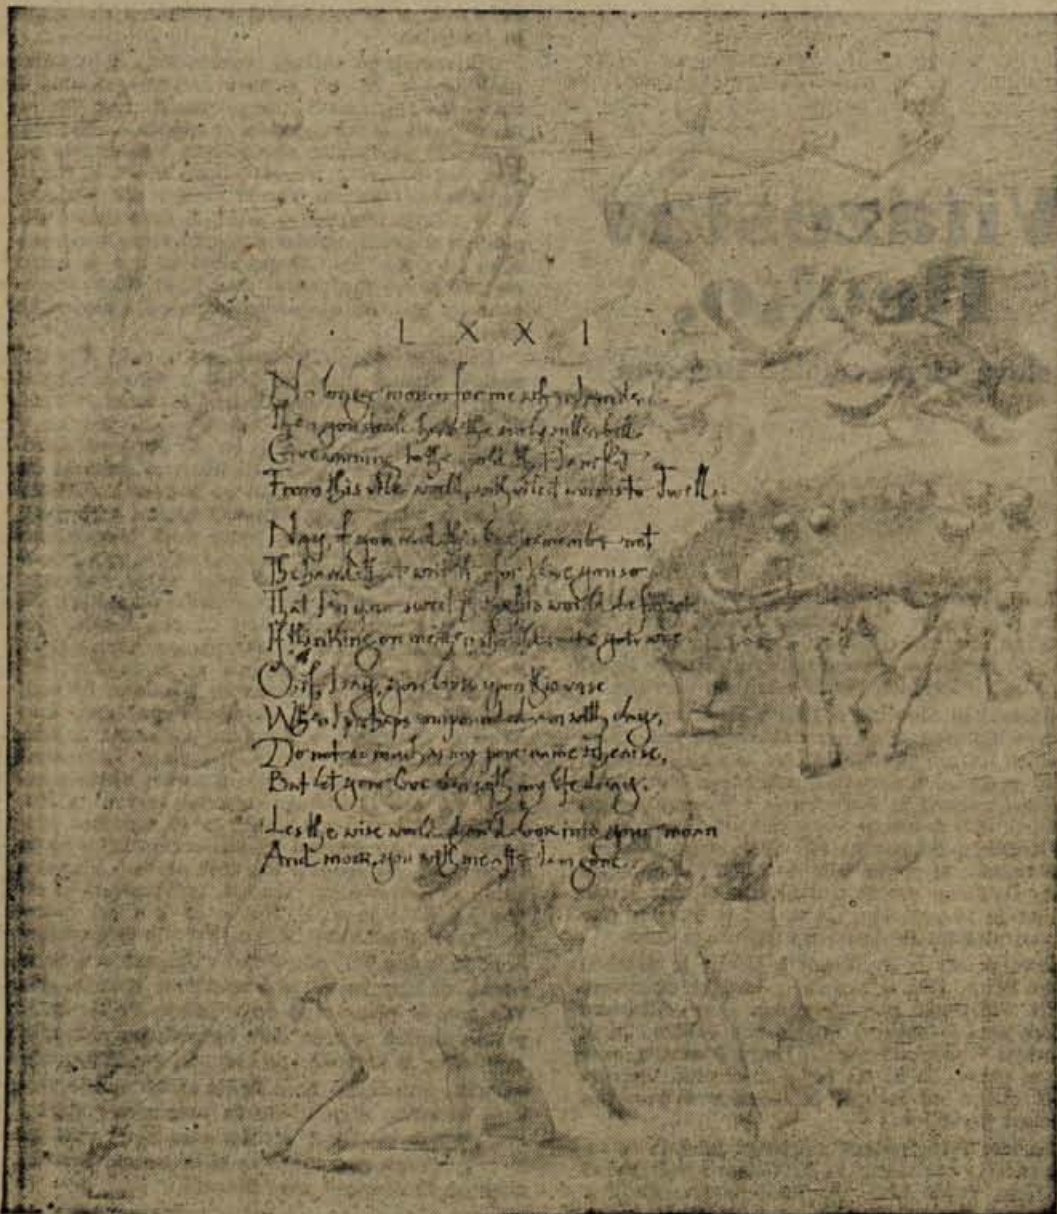 L X X I
No longer mourn for me when
Then you shall hear the surly sullen bell
Give warning to the world that I am fled
From this vile world, with vilest worms to dwell.
Nay, if you read this line remember not
The hand that writ it for I love you so
That I in your sweet thoughts would be forgot
If thinking on me then should make you
O, if, I say, you look upon this verse
When I perhaps compounded am with clay,
Do not so much as my poor name rehearse,
But let your love even with my life decay.
Les the wise world should look into your moan
And mock you with me after I am gone.